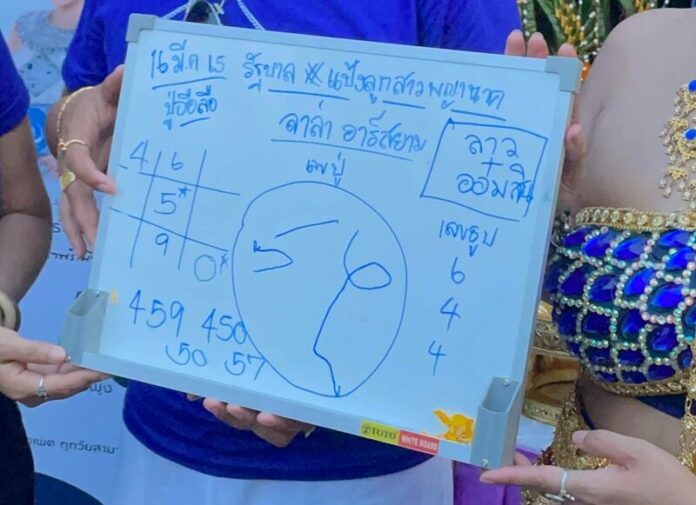 16 มี.ค 65 รัฐบาล ※ แป้งลูกสาวพญานาค
ปู่อือลือ
ลาล่า อาร์สยาม
ลาว
+
ออมสิน
เลขปู่
4 6
5*
9
0*
เลขธูป
6
4
4
459 450
50 57
TOTO WHITE BOARD